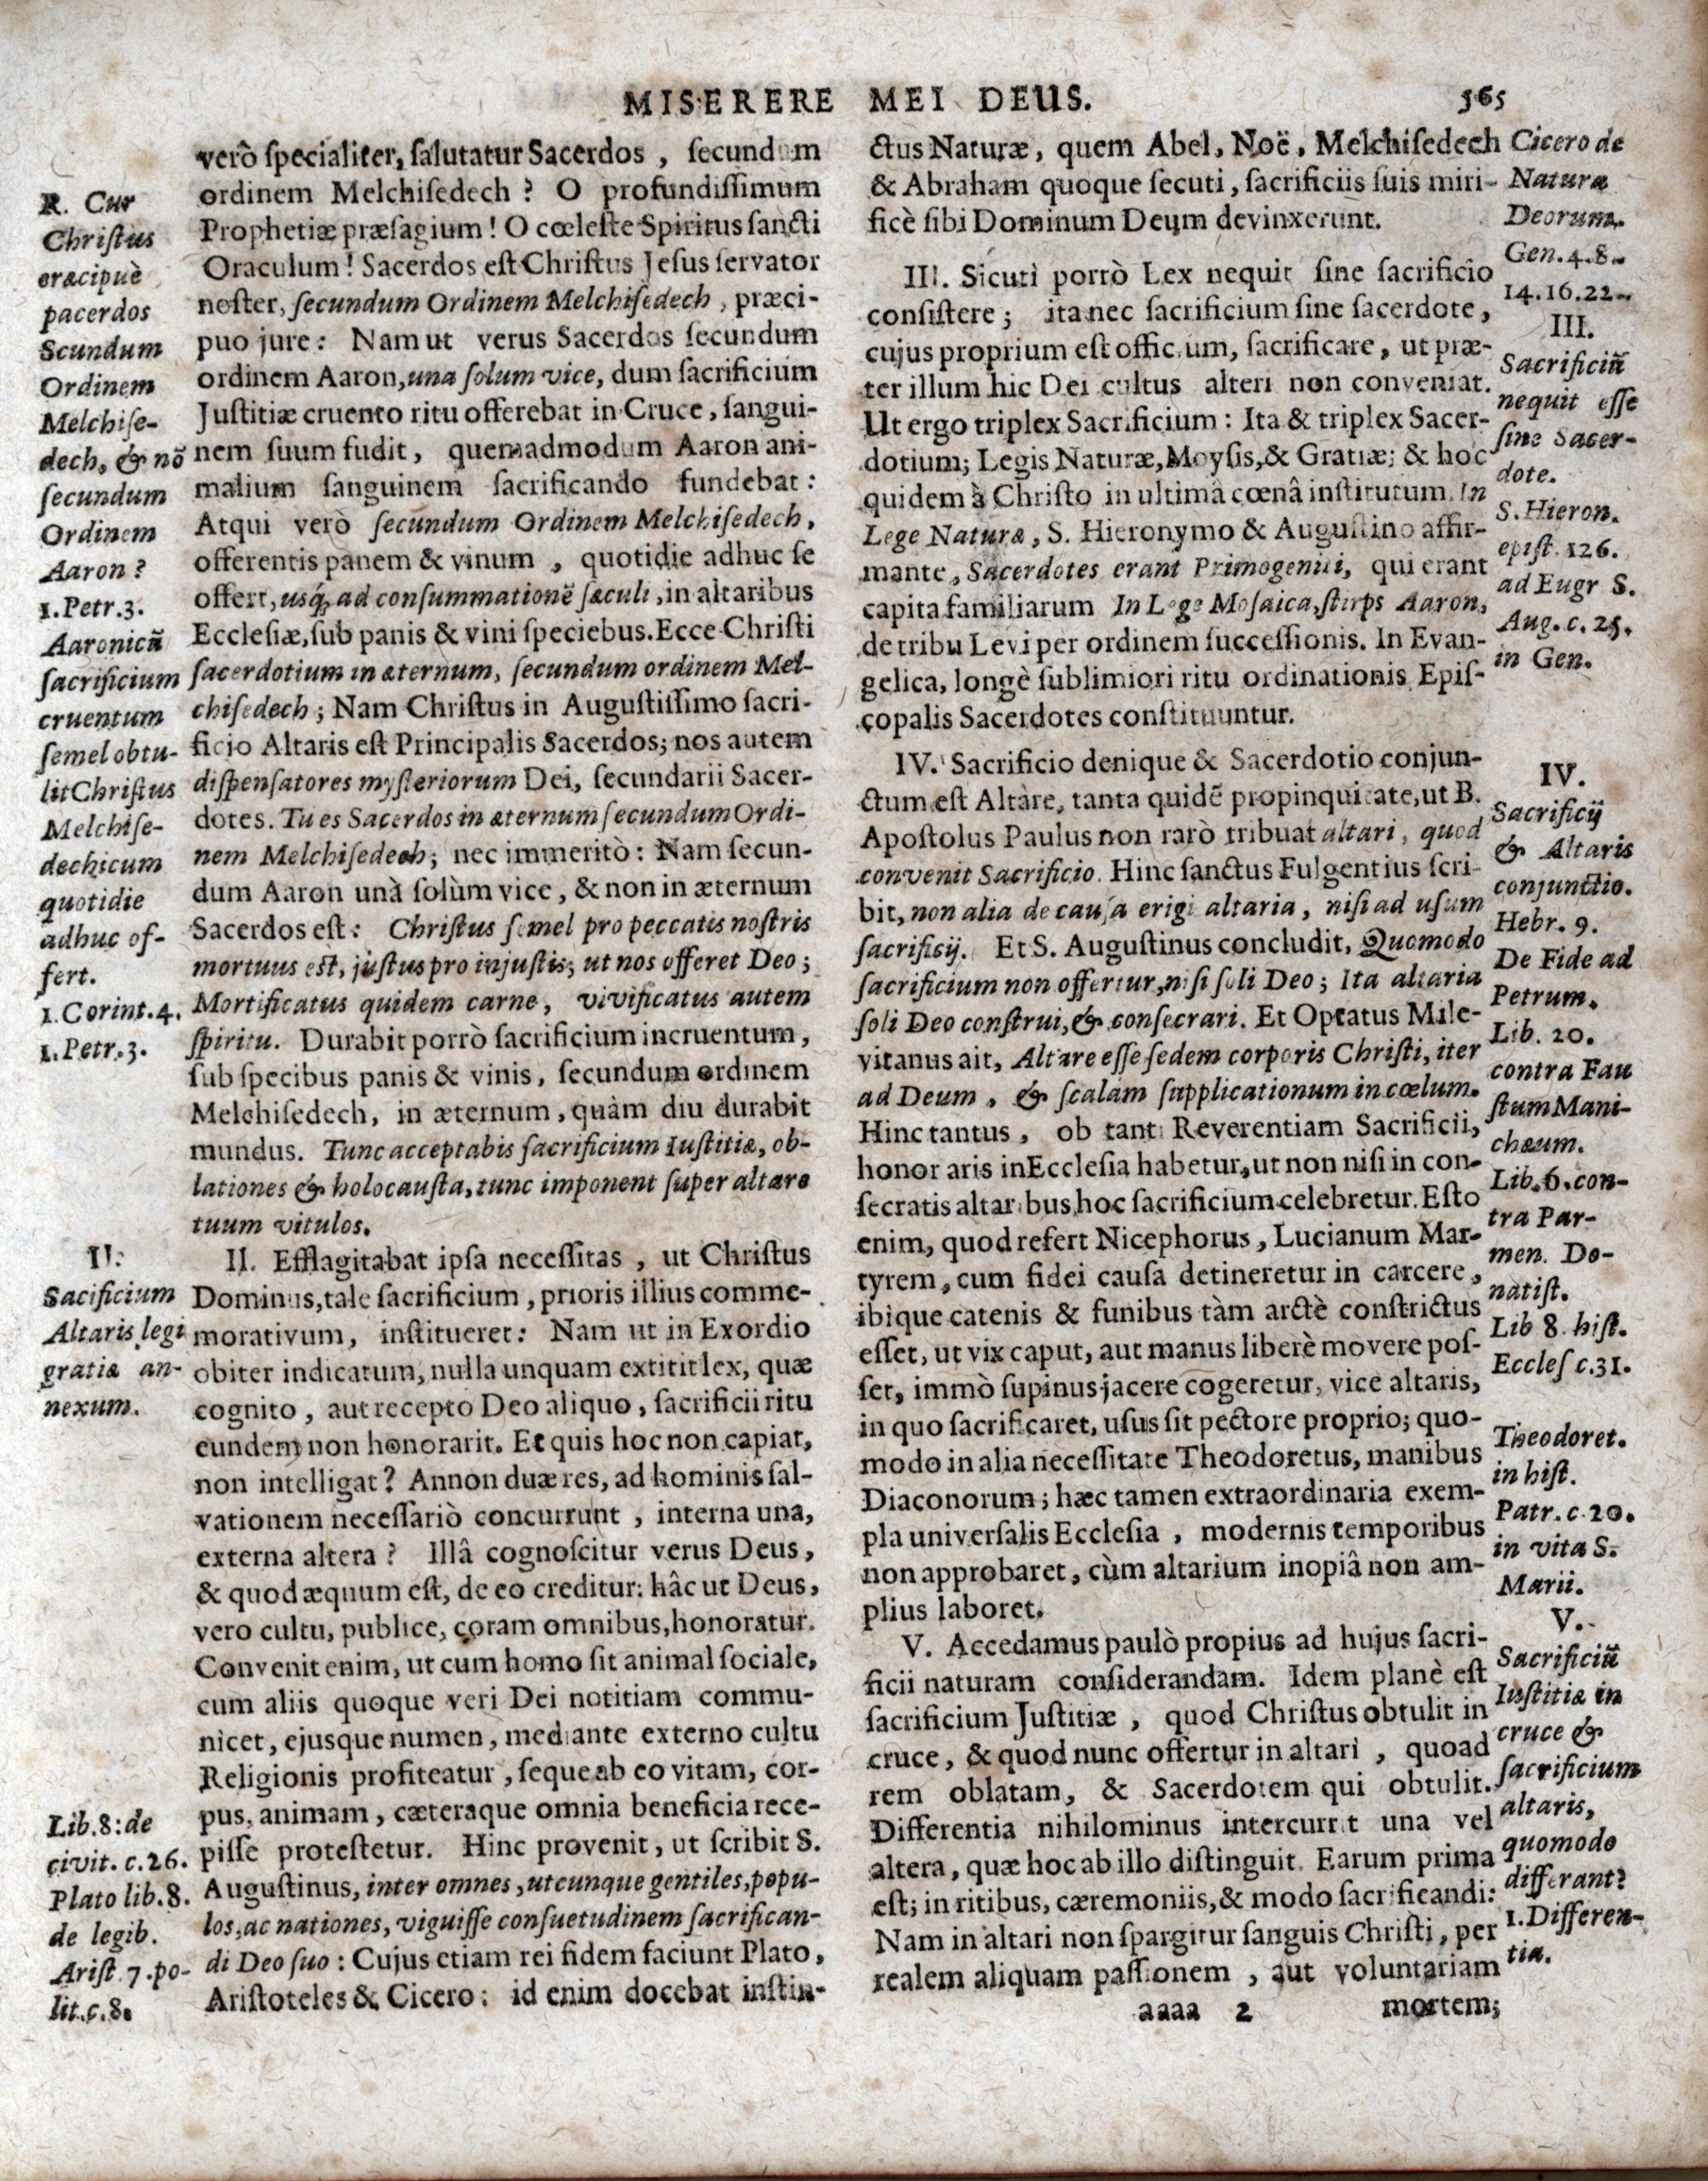 MISERERE MEI DEUS. 565
verò specialiter, salutatur Sacerdos, secundum
ordinem Melchisedech? O profundissimum
Prophetiæ præsagium! O cœleste Spiritus sancti
Oraculum! Sacerdos est Christus Jesus servator
noster, secundum Ordinem Melchisedech, præci-
puo jure: Nam ut verus Sacerdos secundum
ordinem Aaron, una solum vice, dum sacrificium
Justitiæ cruento ritu offerebat in Cruce, sangui-
nem suum fudit, quemadmodum Aaron ani-
malium sanguinem sacrificando fundebat:
Atqui verò secundum Ordinem Melchisedech,
offerentis panem & vinum, quotidie adhuc se
offert, usq́; ad consummationẽ sæculi, in altaribus
Ecclesiæ, sub panis & vini speciebus. Ecce Christi
sacerdotium in æternum, secundum ordinem Mel-
chisedech; Nam Christus in Augustissimo sacri-
ficio Altaris est Principalis Sacerdos; nos autem
dispensatores mysteriorum Dei, secundarii Sacer-
dotes. Tu es Sacerdos in æternum secundum Ordi-
nem Melchisedech; nec immeritò: Nam secun-
dum Aaron unà solùm vice, & non in æternum
Sacerdos est: Christus semel pro peccatis nostris
mortuus est, justus pro injustis; ut nos offeret Deo;
Mortificatus quidem carne, vivificatus autem
spiritu. Durabit porrò sacrificium incruentum,
sub specibus panis & vinis, secundum ordinem
Melchisedech, in æternum, quàm diu durabit
mundus. Tunc acceptabis sacrificium Iustitiæ, ob-
lationes & holocausta, tunc imponent super altare
tuum vitulos.
II. Efflagitabat ipsa necessitas, ut Christus
Dominus, tale sacrificium, prioris illius comme-
morativum, institueret: Nam ut in Exordio
obiter indicatum, nulla unquam extitit lex, quæ
cognito, aut recepto Deo aliquo, sacrificii ritu
eundem non honorarit. Et quis hoc non capiat,
non intelligat? Annon duæ res, ad hominis sal-
vationem necessariò concurrunt, interna una,
externa altera? Illâ cognoscitur verus Deus,
& quod æquum est, de eo creditur: hâc ut Deus,
vero cultu, publice, coram omnibus, honoratur.
Convenit enim, ut cum homo sit animal sociale,
cum aliis quoque veri Dei notitiam commu-
nicet, ejusque numen, mediante externo cultu
Religionis profiteatur, seque ab eo vitam, cor-
pus, animam, cæteraque omnia beneficia rece-
pisse protestetur. Hinc provenit, ut scribit S.
Augustinus, inter omnes, utcunque gentiles, popu-
los, ac nationes, viguisse consuetudinem sacrifican-
di Deo suo: Cujus etiam rei fidem faciunt Plato,
Aristoteles & Cicero: id enim docebat instin-
R. Cur
Christus
eræcipuè
pacerdos
Scundum
Ordinem
Melchise-
dech, & nō
secundum
Ordinem
Aaron?
1. Petr. 3.
Aaronicũ
sacrificium
cruentum
semel obtu-
lit Christus
Melchise-
dechicum
quotidie
adhuc of-
fert.
1. Corint. 4.
1. Petr. 3.
II.
Sacificium
Altaris legi
gratiæ an-
nexum.
Lib. 8: de
civit. c. 26.
Plato lib. 8.
de legib.
Arist. 7. po-
lit. c. 8.
ctus Naturæ, quem Abel, Noë, Melchisedech
& Abraham quoque secuti, sacrificiis suis miri-
ficè sibi Dominum Deum devinxerunt.
III. Sicuti porrò Lex nequit sine sacrificio
consistere; ita nec sacrificium sine sacerdote,
cujus proprium est officium, sacrificare, ut præ-
ter illum hic Dei cultus alteri non conveniat.
Ut ergo triplex Sacrificium: Ita & triplex Sacer-
dotium; Legis Naturæ, Moysis, & Gratiæ; & hoc
quidem à Christo in ultimâ cœnâ institutum. In
Lege Naturæ, S. Hieronymo & Augustino affir-
mante, Sacerdotes erant Primogeniti, qui erant
capita familiarum In Lege Mosaica, stirps Aaron,
de tribu Levi per ordinem successionis. In Evan-
gelica, longè sublimiori ritu ordinationis Epis-
copalis Sacerdotes constituuntur.
IV. Sacrificio denique & Sacerdotio conjun-
ctum est Altàre, tanta quidẽ propinquitate, ut B.
Apostolus Paulus non rarò tribuat altari, quod
convenit Sacrificio. Hinc sanctus Fulgentius scri-
bit, non alia de causa erigi altaria, nisi ad usum
sacrificij. Et S. Augustinus concludit, Quomodo
sacrificium non offertur, nisi soli Deo; Ita altaria
soli Deo construi, & consecrari. Et Optatus Mile-
vitanus ait, Altare esse sedem corporis Christi, iter
ad Deum, & scalam supplicationum in cœlum.
Hinc tantus, ob tanti Reverentiam Sacrificii,
honor aris in Ecclesia habetur, ut non nisi in con-
secratis altaribus hoc sacrificium celebretur. Esto
enim, quod refert Nicephorus, Lucianum Mar-
tyrem, cum fidei causa detineretur in carcere,
ibique catenis & funibus tàm arctè constrictus
esset, ut vix caput, aut manus liberè movere pos-
set, immò supinus jacere cogeretur, vice altaris,
in quo sacrificaret, usus sit pectore proprio; quo-
modo in alia necessitate Theodoretus, manibus
Diaconorum; hæc tamen extraordinaria exem-
pla universalis Ecclesia, modernis temporibus
non approbaret, cùm altarium inopiâ non am-
plius laboret.
V. Accedamus paulò propius ad hujus sacri-
ficii naturam considerandam. Idem planè est
sacrificium Justitiæ, quod Christus obtulit in
cruce, & quod nunc offertur in altari, quoad
rem oblatam, & Sacerdotem qui obtulit.
Differentia nihilominus intercurrit una vel
altera, quæ hoc ab illo distinguit. Earum prima
est; in ritibus, cæremoniis, & modo sacrificandi:
Nam in altari non spargitur sanguis Christi, per
realem aliquam passionem, aut voluntariam
aaaa 2 mortem;
Cicero de
Naturæ
Deorum.
Gen. 4. 8.
14. 16. 22.
III.
Sacrificiũ
nequit esse
sine Sacer-
dote.
S. Hieron.
epist. 126.
ad Eugr S.
Aug. c. 25.
in Gen.
IV.
Sacrificij
& Altaris
conjunctio.
Hebr. 9.
De Fide ad
Petrum.
Lib. 20.
contra Fau
stum Mani-
chæum.
Lib. 6. con-
tra Par-
men. Do-
natist.
Lib 8. hist.
Eccles c. 31.
Theodoret.
in hist.
Patr. c. 20.
in vita S.
Marii.
V.
Sacrificiũ
Iustitiæ in
cruce &
sacrificium
altaris,
quomodo
differant?
1. Differen-
tia.